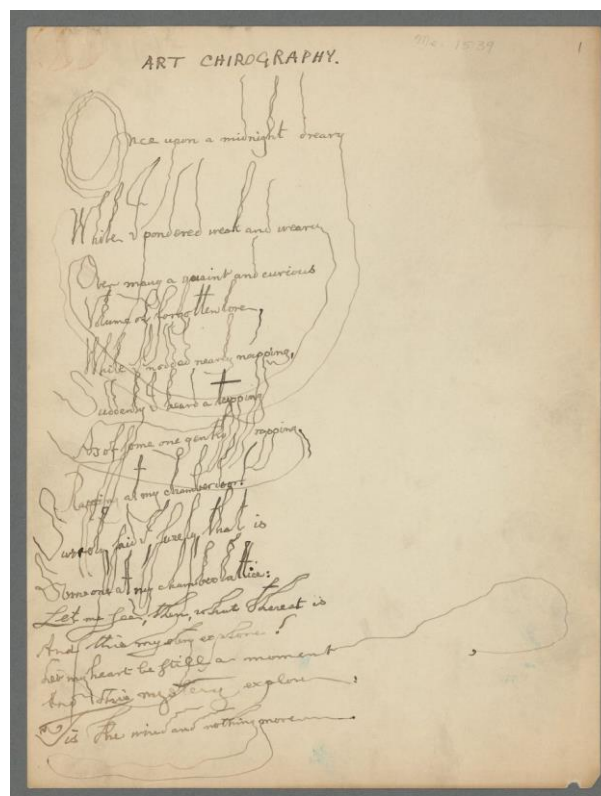 ART CHIROGRAPHY.
1
Once upon a midnight dreary
While I pondered weak and weary
Over many a quaint and curious
Volume of forgotten lore,
While I nodded nearly napping,
Suddenly I heard a tapping
As of some one gently rapping,
Rapping at my chamber door.
said I, surely that is
Some one at my chamber lattice:
Let me see, then, what thereat is
And this mystery explore!
Let my heart be still a moment
And this mystery explore,
Tis the wind and nothing more